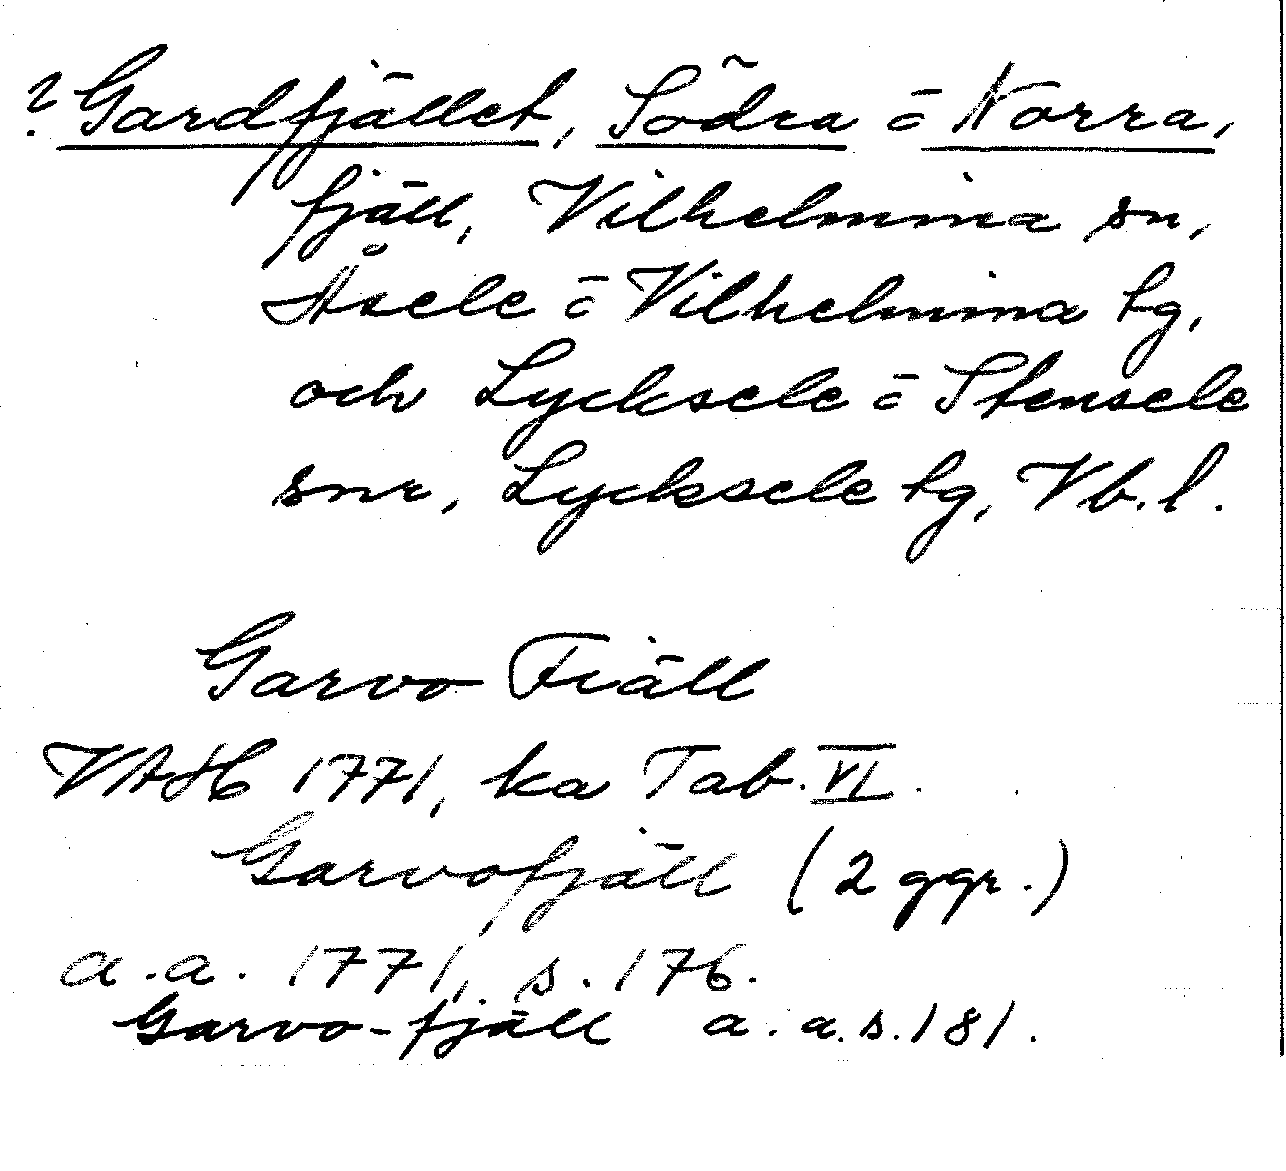 ? Gardfjället, Södra o Norra,
fjäll, Vilhelmina sn,
Åsele o Vilhelmina tg,
och Lycksele o Stensele
snr, Lycksele tg, Vb. l.
Garvo Fiäll
VAH 1771, ka Tab. VI.
Garvofjäll (2 ggr.)
a.a. 1771, s. 176.
Garvo-fjäll a.a.s. 181.